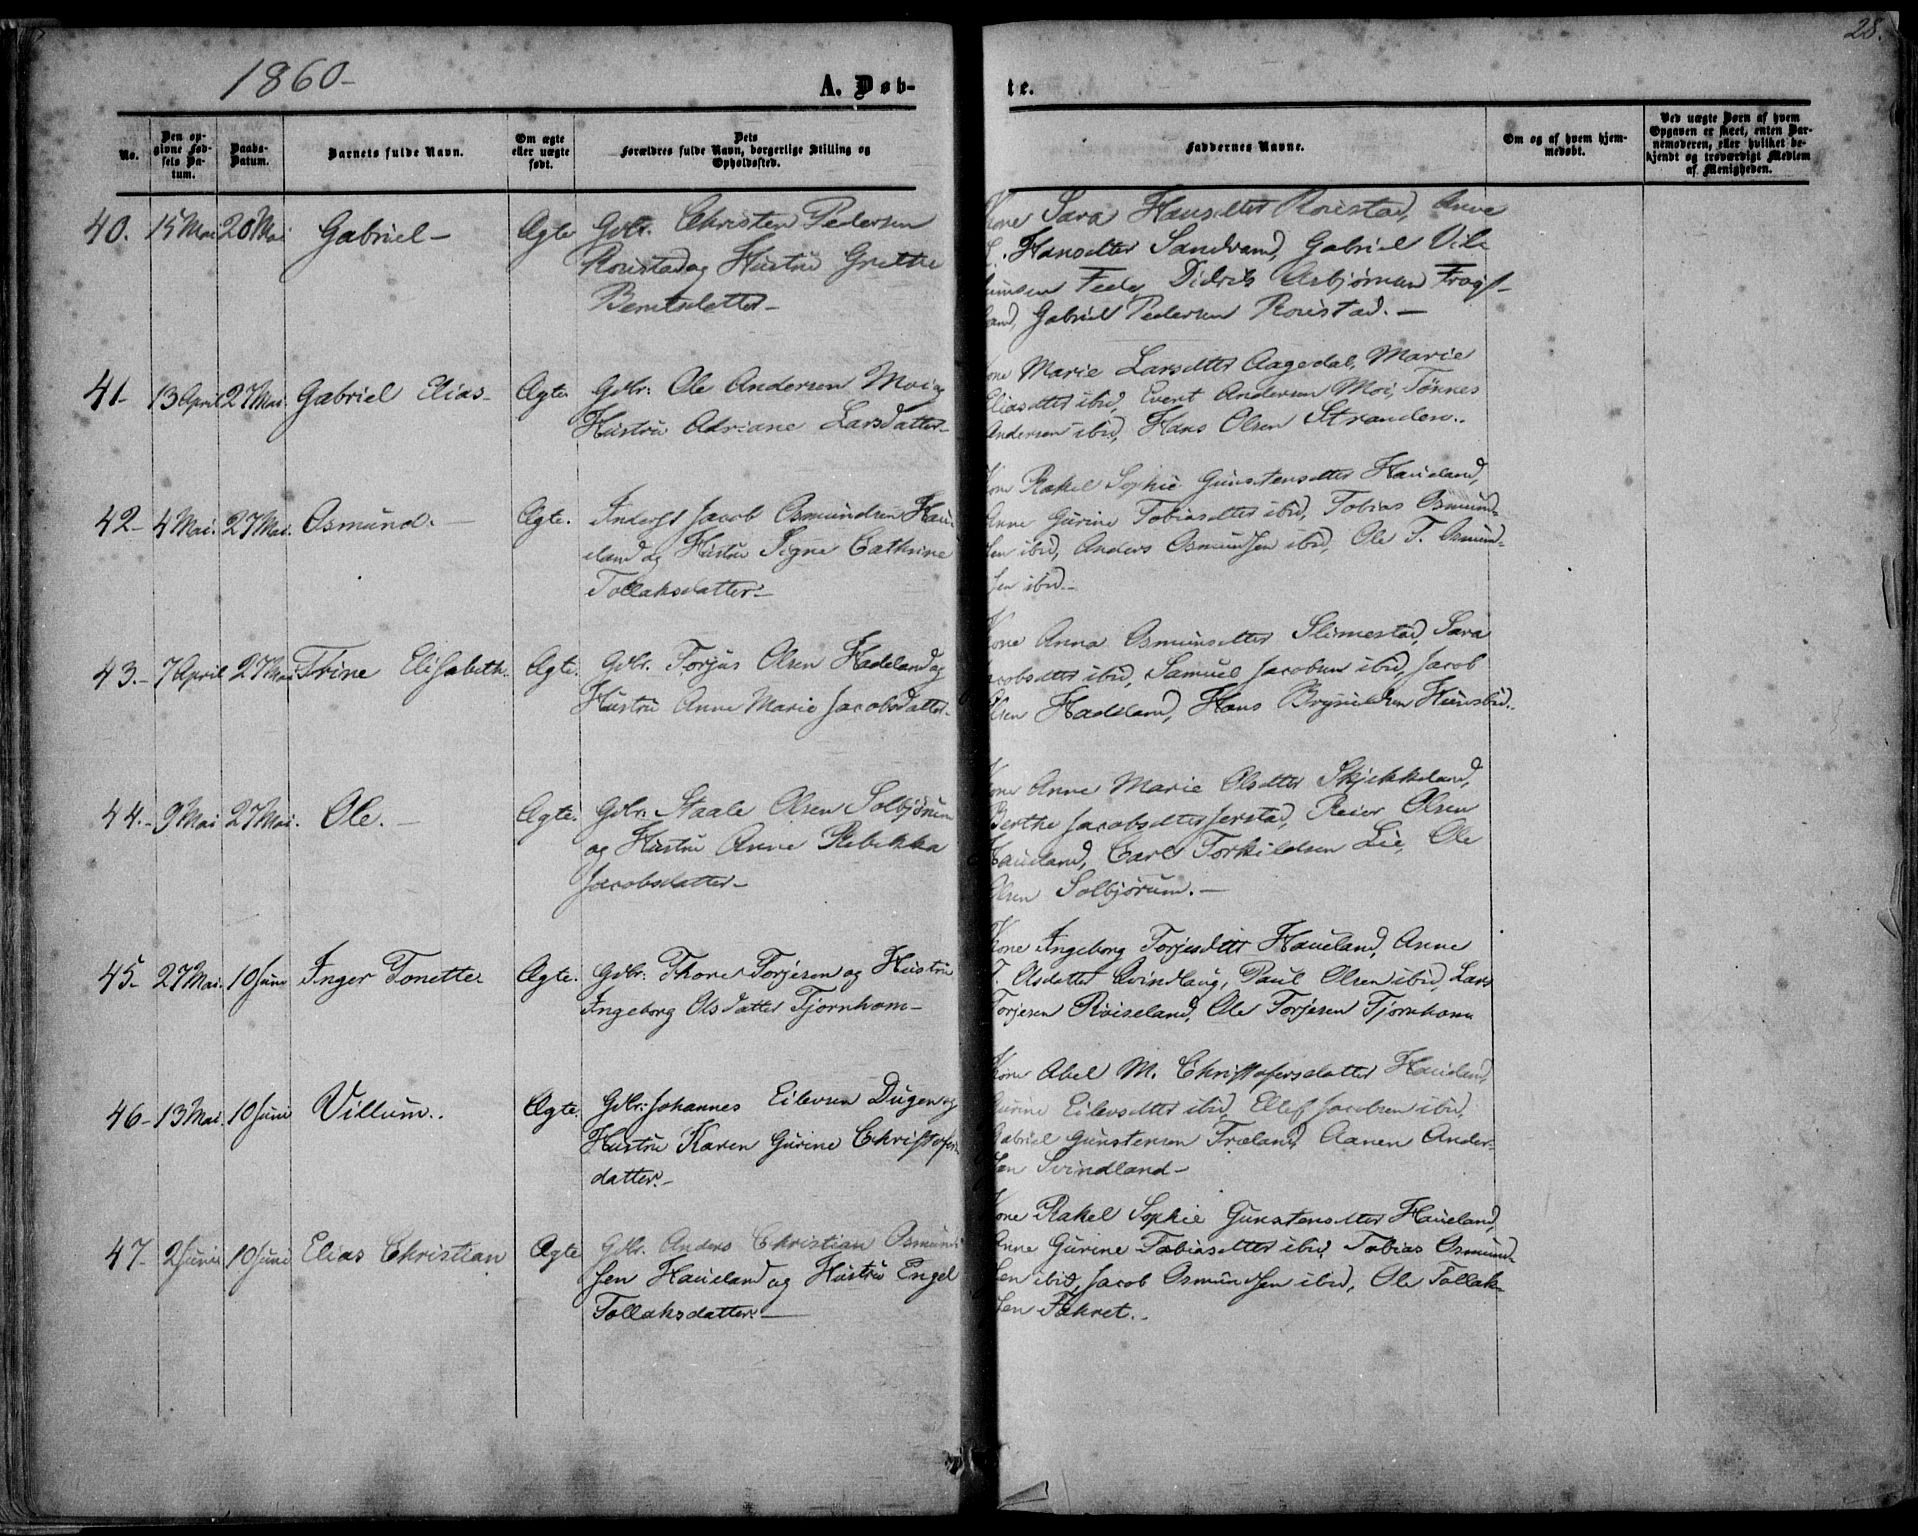 1860-
A. Døb-
te.
28.
No.
Den op-
givne Fød-
sels Da-
tum.
Daabs-
Datum.
Barnets fulde Navn.
Om ægte
eller uægte
født.
Dets
Forældres fulde Navn, borgerlige Stilling og
Opholdssted.
Faddernes Navne.
Om og af hvem hjem-
medøbt.
Ved uægte Børn af hvem
Opgaven er skeet, enten Bar-
nemoderen, eller hvilket be-
kjendt og troværdigt Medlem
af Menigheden.
40. 15 Mai 20 Mai Gabriel- Ægte Gdbr. Christen Pedersen
Rouestad og Hustru Grethe
Berntsdatter-
Kone Sara Hansdtter Rouestad, Anne
Hansdtter Sandvand, Gabriel Vil-
umsen Feed, Didrik Asbjørnsen Frøyt-
land, Gabriel Pedersen Rouestad.-
41- 13 April 27 Mai. Gabriel Elias- Ægte Gdbr. Ole Andersen Moi og
Hustru Adriane Larsdatter-
Kone Marie Larsdtter Aagedal, Marie
Eliasdtter ibid, Evert Andersen Moi, Tønnes
Andersen ibid, Hans Olsen Stranden.
42- 4 Mai. 27 Mai. Osmund.- Ægte. Inderst Jacob Osmundsen Haue-
land og Hustru Signe Cathrine
Tollaksdatter-
Kone Rakel Sophie Gunstensdtter Haueland,
Anne Gurine Tobiasdtter ibid, Tobias Osmund-
sen ibid, Anders Osmundsen ibid, Ole T. Osmund-
sen ibid-
43.- 7 April 27 Mai Trine Elisabeth. Ægte. Gdbr. Torjus Olsen Hadeland og
Hustru Anne Marie Jacobsdatter-
Kone Anna Osmundsdtter Slimestad, Sara
Jacobsdtter ibid, Samuel Jacobsen ibid, Jacob
Olsen Hadeland, Hans Brynildsen Hunsbed.
44.- 9 Mai 27 Mai. Ole.- Ægte. Gdbr. Staale Olsen Solbjørum
og Hustru Anne Rebekka
Jacobsdatter-
Kone Anne Marie Olsdtter Skjekkeland,
Berthe Jacobsdtter Jerstad, Reier Olsen
Haueland, Carl Torkildsen Lie, Ole
Olsen Solbjørum.-
45- 27 Mai. 10 Juni Inger Tonette Ægte. Gdbr. Thore Torjesen og Hustru
Ingeborg Olsdatter Tjørnhom-
Kone Ingeborg Torjesdttr Haueland, Anne
T. Olsdatter Qvindlaug, Paul Olsen ibid, Lars
Torjesen Røiseland, Ole Torjesen Tjørnhom
46- 13 Mai. 10 Juni Villum. Ægte. Gdbr. Johannes Eilevsen Dugen og
Hustru Karen Gurine Christofers-
datter.-
Kone Abel M. Christofersdatter Haueland,
Gurine Eilevsdtter ibid, Ellef Jacobsen ibid,
Gabriel Gunstensen Træland, Aanen Ander-
sen Svindland-
47- 2 Juni 10 Juni Elias Christian Ægte Gdbr. Anders Christian Osmund-
sen Haueland og Hustru Engel
Tollaksdatter.-
Kone Rakel Sophie Gunstensdtter Haueland,
Anne Gurine Tobiasdtter ibid, Tobias Osmund-
sen ibid, Jacob Osmundsen ibid, Ole Tollak-
sen